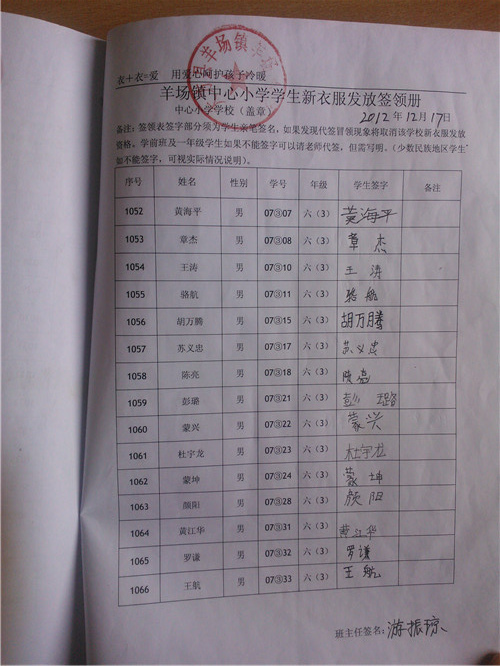 衣+衣=爱 用爱心呵护孩子冷暖
羊场镇中心小学学生新衣服发放签领册
中心小学学校(盖章) 2012年12月17日
备注:签领表签字部分须为学生亲笔签名,如果发现代签冒领现象将取消该学校新衣服发放
资格。学前班及一年级学生如果不能签字可以请老师代签,但需写明。(少数民族地区学生
如不能签字,可视实际情况说明)。
序号 姓名 性别 学号 年级 学生签字 备注
1052 黄海平 男 07③07 六(3) 黄海平
1053 章杰 男 07③08 六(3) 章杰
1054 王涛 男 07③10 六(3) 王涛
1055 骆航 男 07③11 六(3) 骆航
1056 胡万腾 男 07③15 六(3) 胡万腾
1057 苏义忠 男 07③17 六(3) 苏义忠
1058 陈亮 男 07③18 六(3) 陈亮
1059 彭璐 男 07③21 六(3) 彭璐
1060 蒙兴 男 07③22 六(3) 蒙兴
1061 杜宇龙 男 07③23 六(3) 杜宇龙
1062 蒙坤 男 07③24 六(3) 蒙坤
1063 颜阳 男 07③28 六(3) 颜阳
1064 黄江华 男 07③31 六(3) 黄江华
1065 罗谦 男 07③32 六(3) 罗谦
1066 王航 男 07③33 六(3) 王航
班主任签名:游振琼